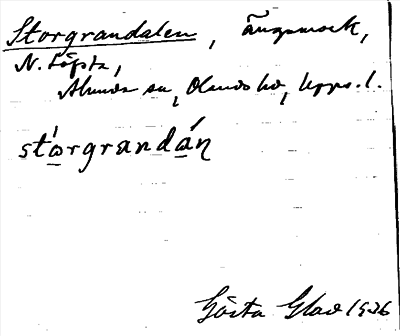 Storgrandalen, ängsmark,
N. Löpsta,
Alunda sn, Olands hd, Upps. l.
stórgrandán
Gösta Glad 1926